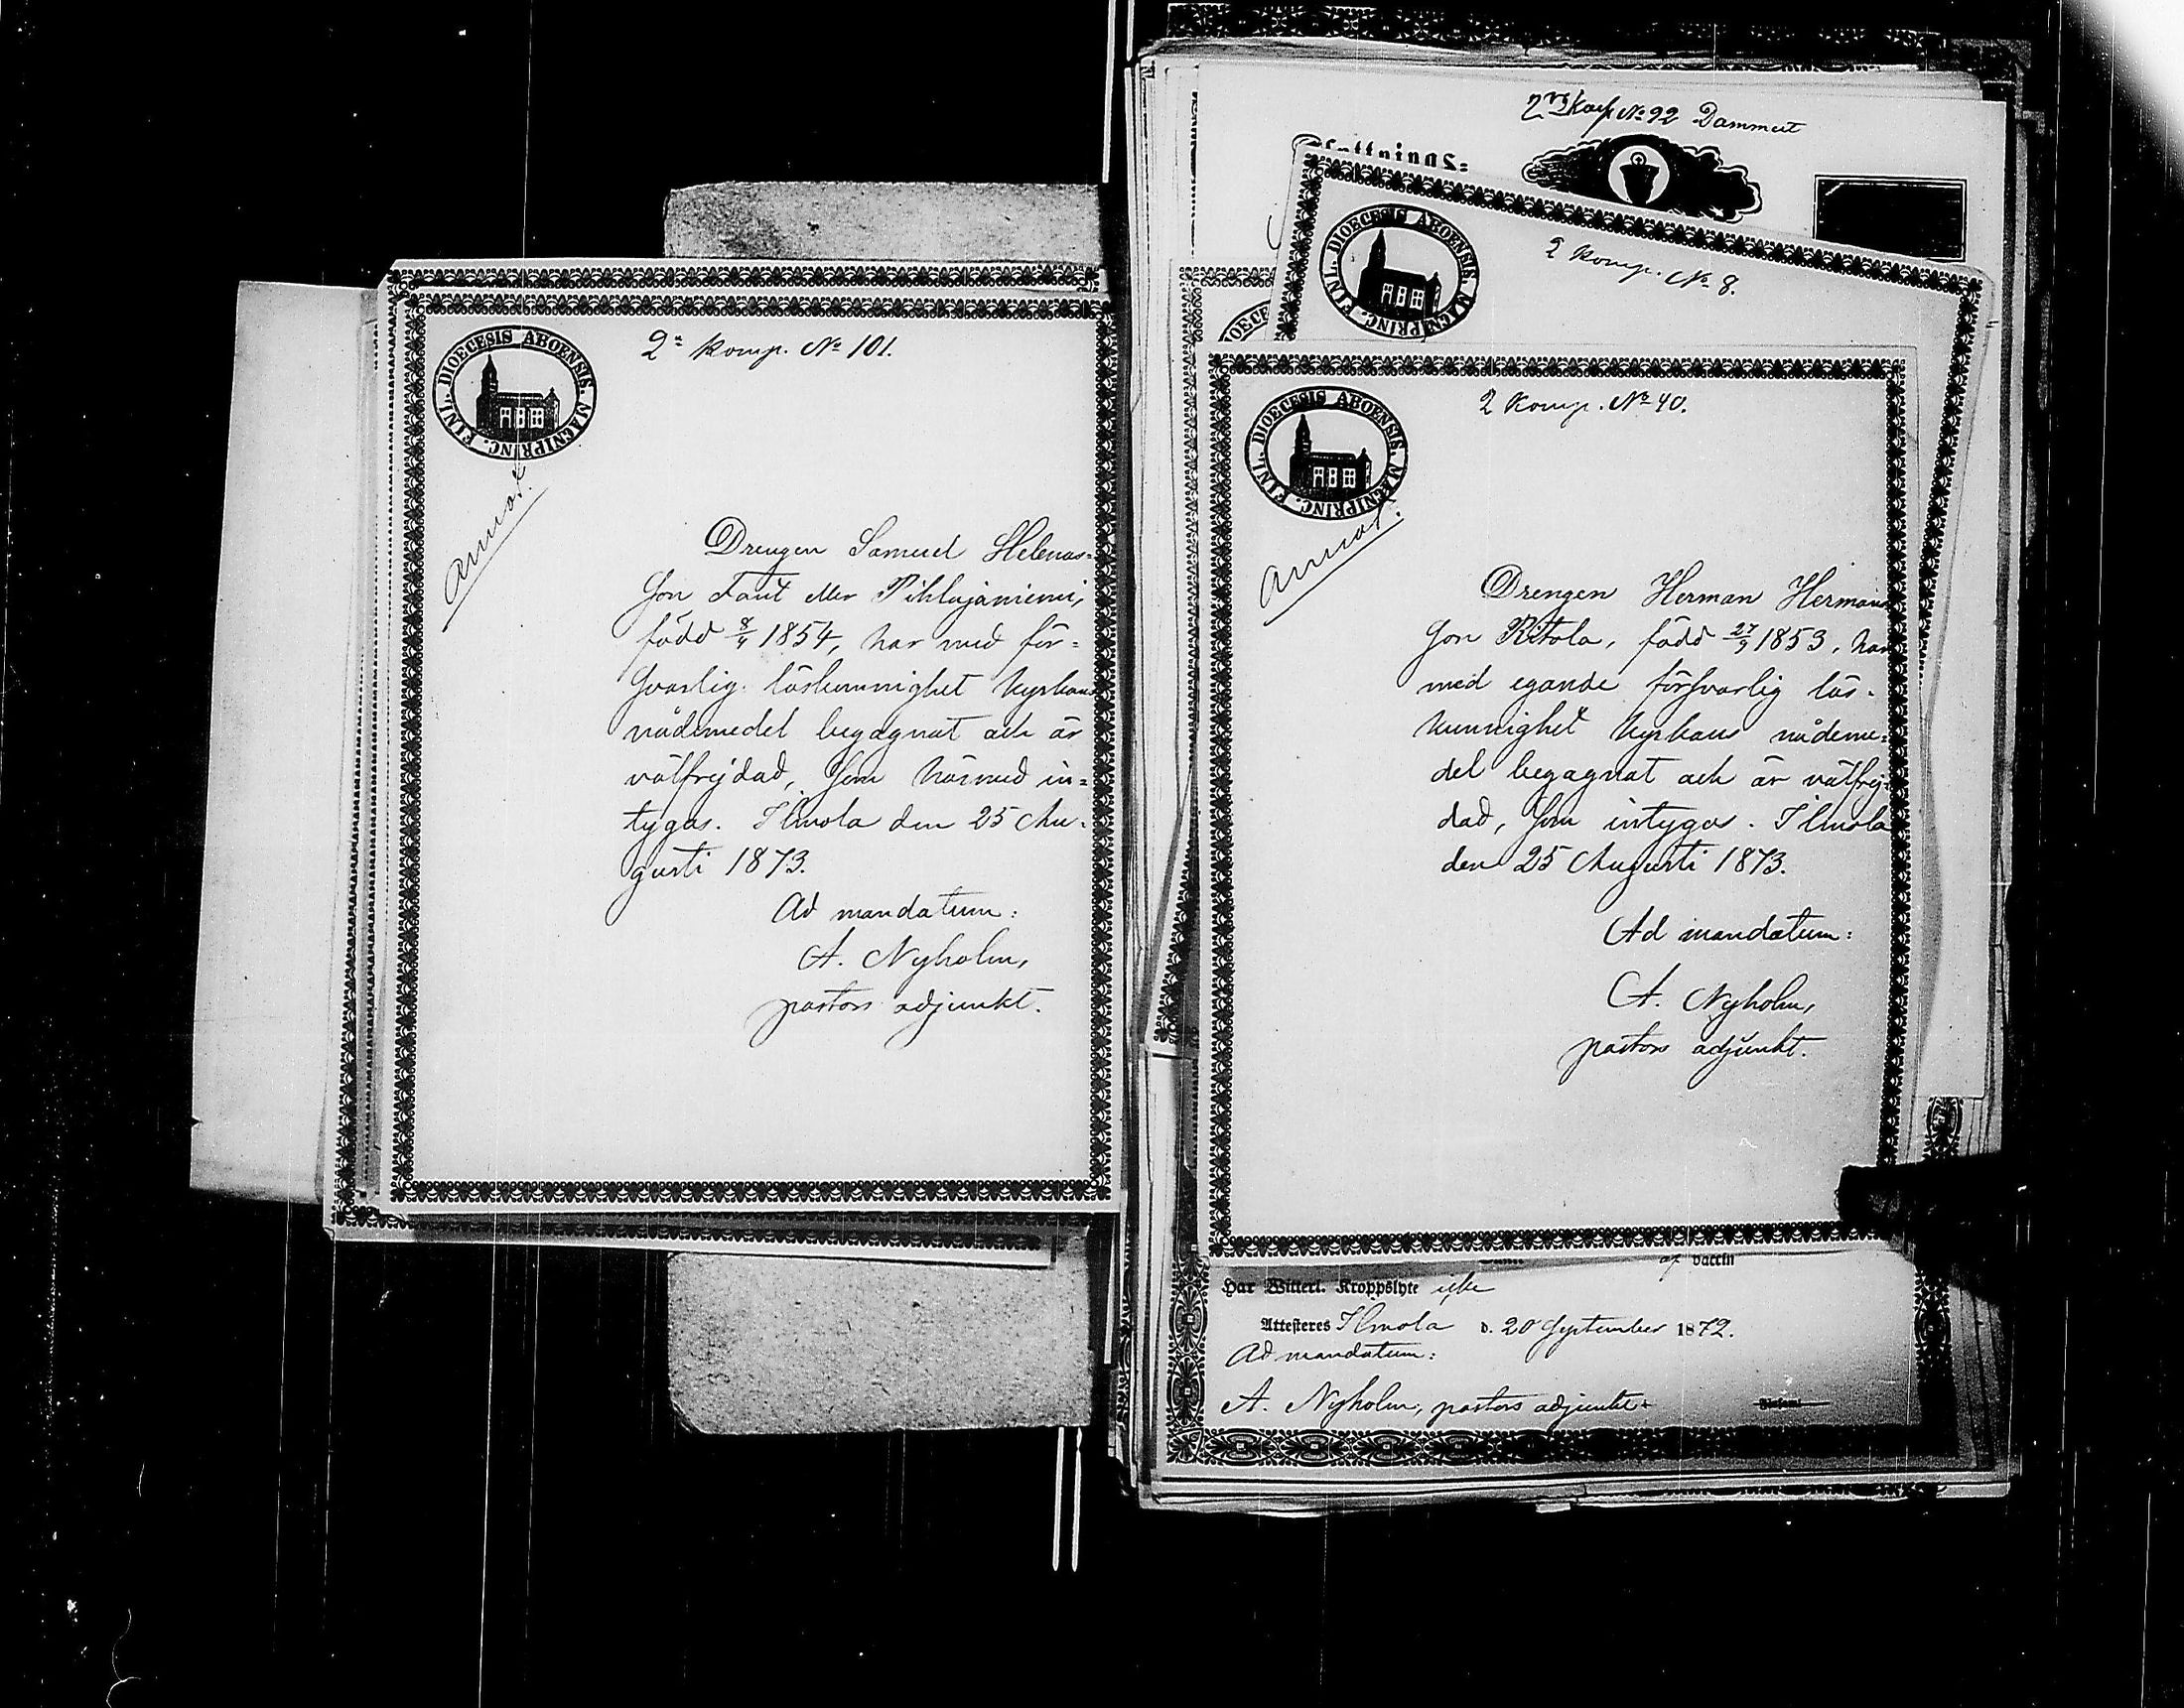 2ª Komp. No 101.
DIOECESIS ABOENSIS. MAGNIPRINC. FINL.
Annot.
Drengen Samuel Helenas-
son Faut eller Pihlajaniemi,
född 8/4 1854, har med för-
svarlig läskunnighet kyrkans
nådemedel begagnat och är
välfrejdad, som härmed in-
tygas. Ilmola den 25 Au-
gusti 1873.
Ad mandatum:
A. Nyholm,
pastors adjunkt.
No 92 Dammert
2 Komp. No 8.
DIOECESIS ABOENSIS. MAGNIPRINC. FINL.
DIOECE
2 Komp. No 40.
DIOECESIS ABOENSIS. MAGNIPRINC. FINL.
Annot.
Drengen Herman Hermans
son Ritola, född 27/9 1853, har
med egande försvarlig läs-
kunnighet kyrkans nådeme-
del begagnat och är välfrej-
dad, som intygas. Ilmola
den 25 Augusti 1873.
Ad mandatum:
A. Nyholm,
pastors adjunkt.
af vaccin
Har Witterl. Kroppslyte icke
Attesteres Ilmola d. 20 September 1872.
Ad mandatum:
A. Nyholm, pastors adjunkt.